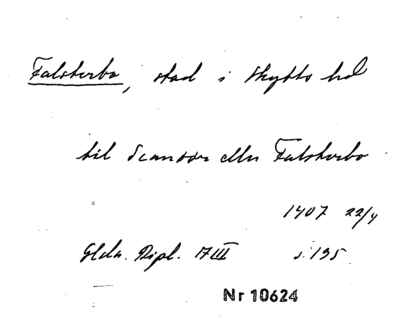 Falsterbo, stad i Skytts hd
til Scanøør eller Falsterbo
1407 22/4
Glda. Dipl. 17 III s. 195.
Nr 10624